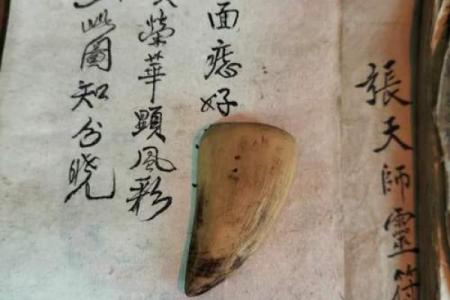 張天師靈符
面痣好
榮華顯風彩
此圖知分曉